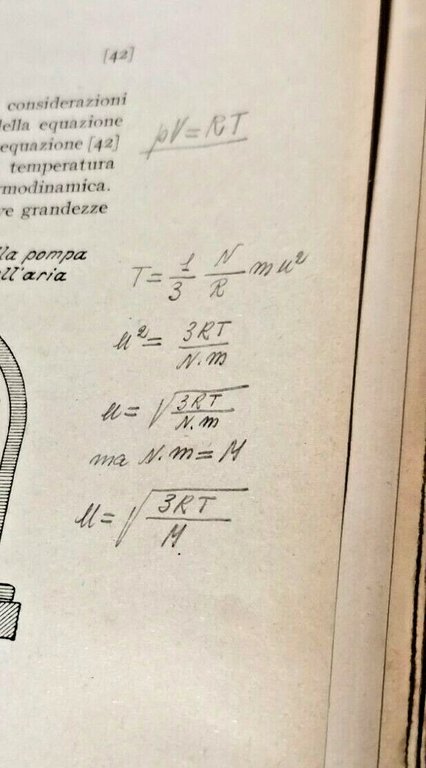 [42]
considerazioni
della equazione
equazione [42]
temperatura
rmodinamica.
ve grandezze
lla pompa
ell'aria
pV = RT
T = 1/3 N/R m u²
u² = 3RT / N.m
u = √(3RT / N.m)
ma N.m = M
u = √(3RT / M)